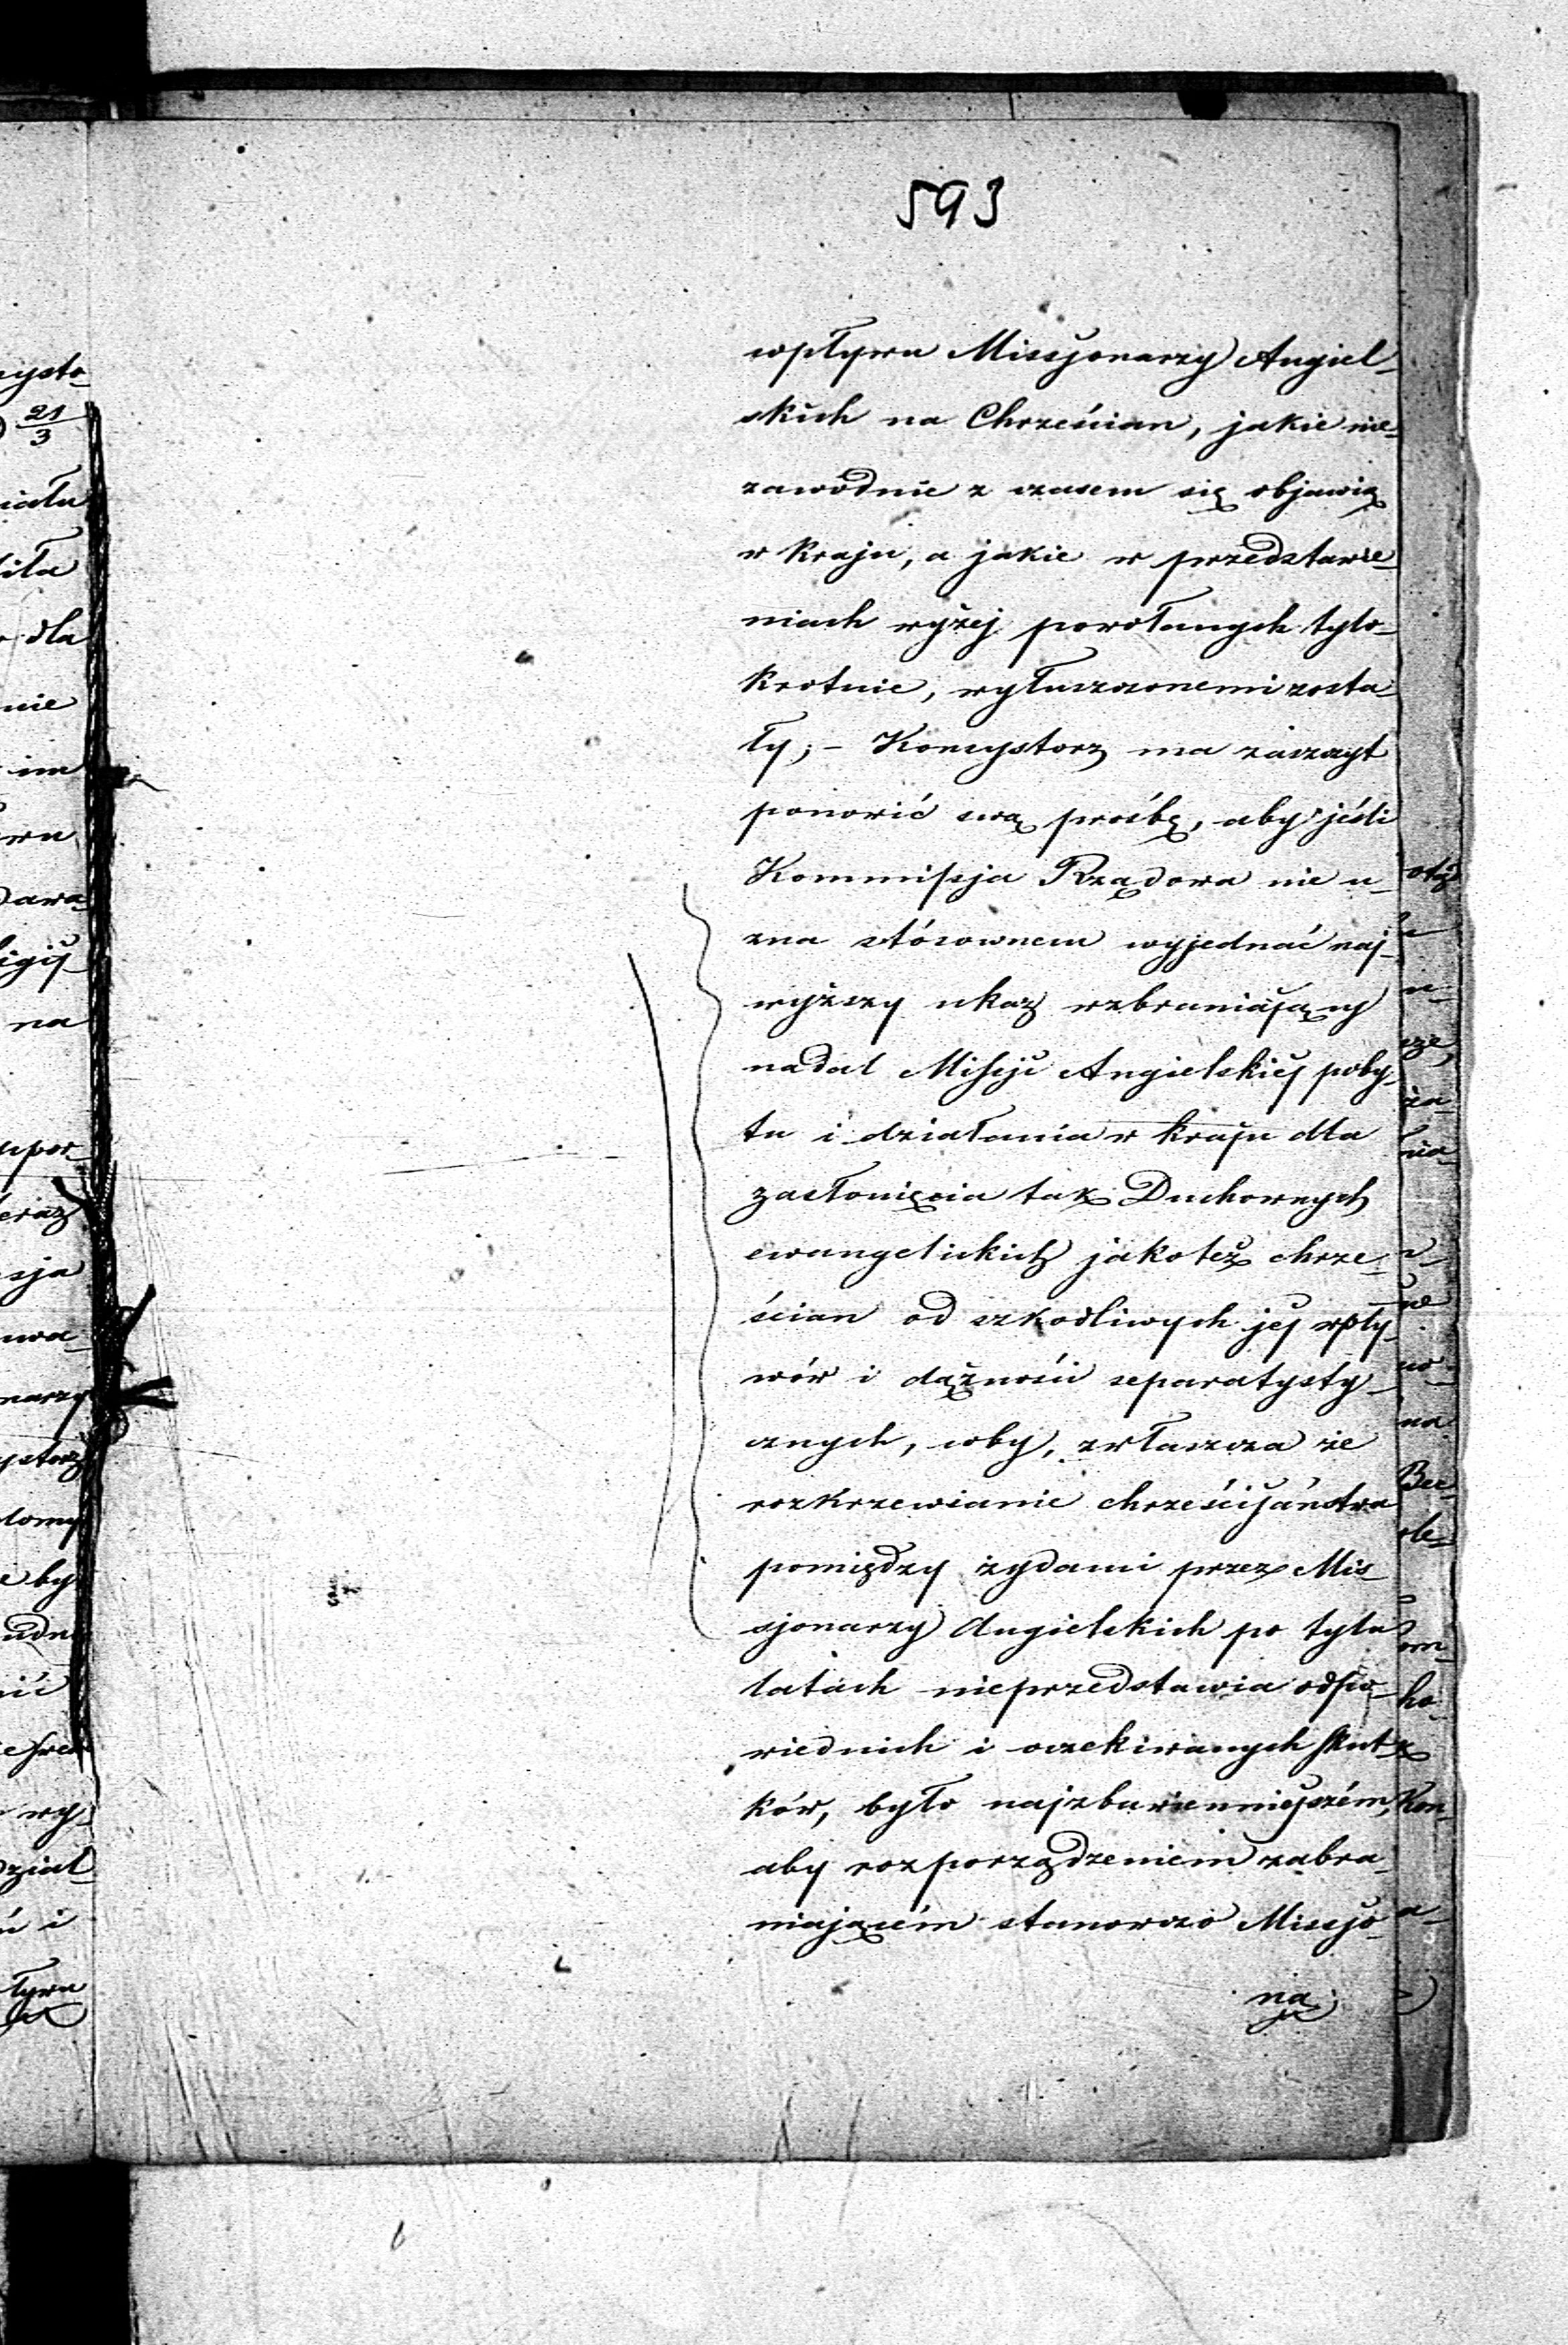 593
wpływu Missjonarzy Angiel-
skich na Chrześcian, jakie nie-
zawodnie z czasem się objawią
w kraju, a jakie w przedstawie-
niach wyżej powołanych tylo-
krotnie, wyłuszczonemi zosta-
ły; – Konsystorz ma zaszczyt
ponowić swą prośbę, aby jeśli
Kommissja Rządowa nie u-
zna stósownem wyjednać naj-
wyższy ukaz wzbraniający
nadal Missji Angielskiej poby-
tu i działania w kraju dla
zasłonięcia tak Duchownych
ewangelickich jakoteż chrze-
ścian od szkodliwych jej wpły-
wów i dążności separatysty-
cznych, coby, zwłaszcza że
rozkrzewianie chrześcijaństwa
pomiędzy żydami przez Mis-
sjonarzy Angielskich po tylu
latach nieprzedstawia odpo-
wiednich i oczekiwanych skut-
ków, było najzbawienniejszém,
aby rozporządzeniem zabra-
niającém stanowczo Missjo-
na